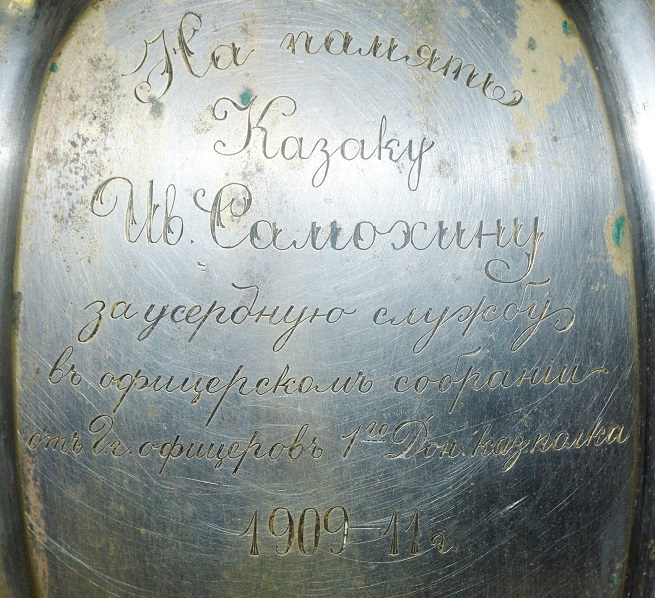 На память
Казаку
Ив. Самохину
за усердную службу
въ офицерскомъ собранiи
отъ Гг. офицеровъ 1го Дон. каз. полка
1909–11 г.